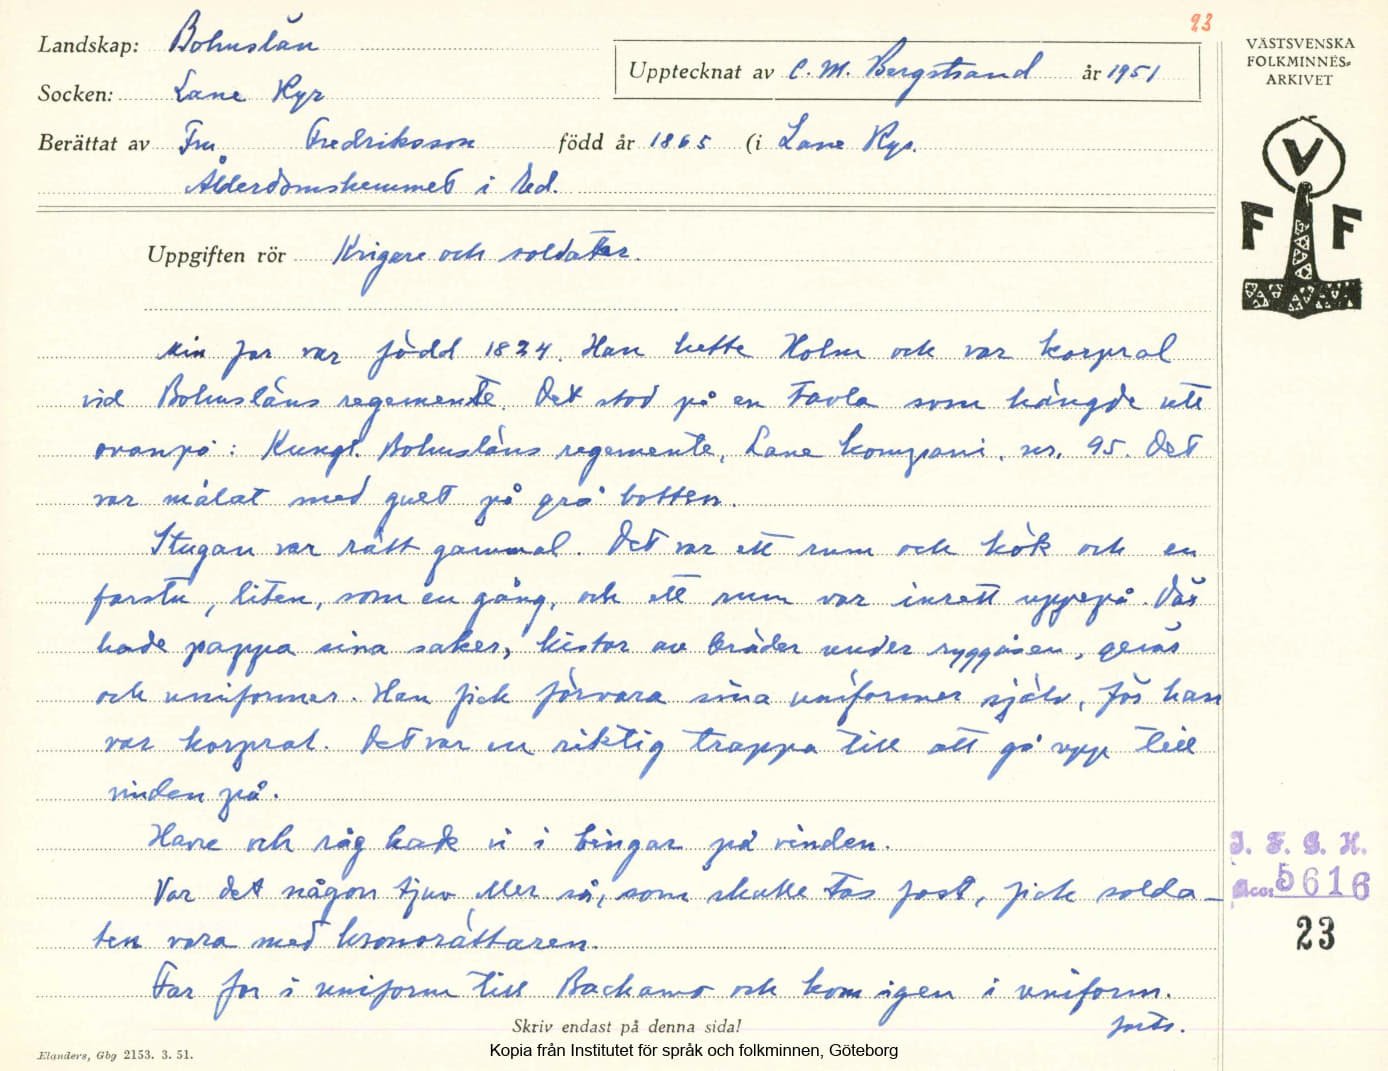 23
Landskap: Bohuslän
Upptecknat av C. M. Bergstrand år 1951
VÄSTSVENSKA
FOLKMINNES-
ARKIVET
Socken: Lane Ryr
Berättat av Fru Fredriksson född år 1865 (i Lane Ryr.
Ålderdomshemmet i Ed.
V
F F
Uppgiften rör Krigare och soldater.
Min far var född 1824. Han hette Holm och var korpral
vid Bohusläns regemente. Det stod på en tavla som hängde ute
ovanpå: Kungl. Bohusläns regemente, Lane kompani, nr. 95. Det
var målat med gult på grå botten.
Stugan var rätt gammal. Det var ett rum och kök och en
farstu, liten, som en gång, och ett rum var inrett uppepå. Där
hade pappa sina saker, kistor av bräder under ryggåsen, gevär
och uniformer. Han fick förvara sina uniformer själv, för han
var korpral. Det var en riktig trappa till att gå upp till
vinden på.
Havre och råg hade vi i bingar på vinden.
Var det någon tjuv eller så, som skulle tas fast, fick solda-
ten vara med kronorättaren.
Far for i uniform till Backamo och kom igen i uniform.
forts.
I. F. G. H.
Acc. 5616
23
Skriv endast på denna sida!
Elanders, Gbg 2153. 3. 51.
Kopia från Institutet för språk och folkminnen, Göteborg